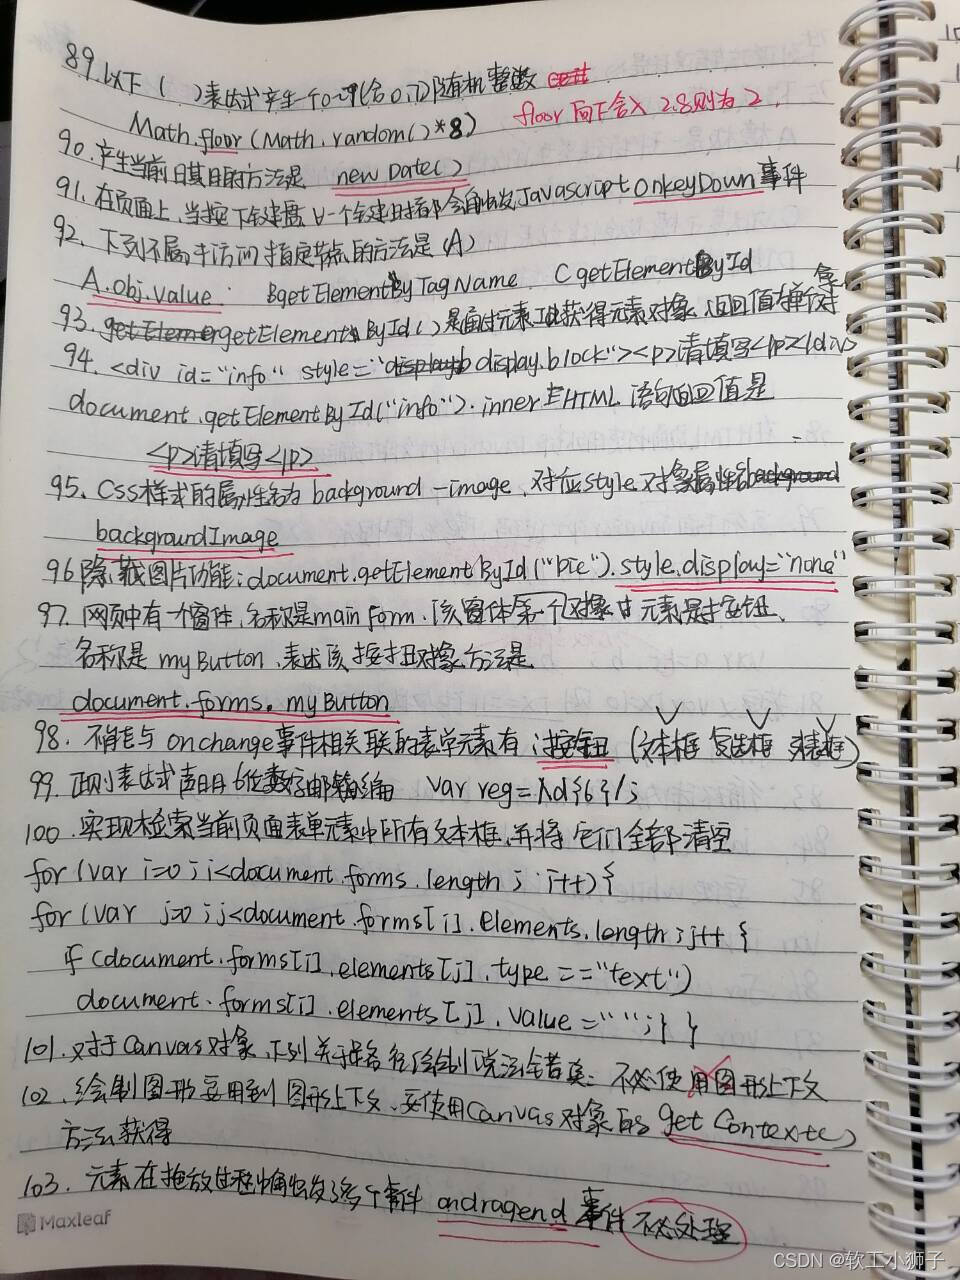 89.以下( )表达式产生一个0~7(含0,7)随机整数
Math.floor(Math.random()*8) floor向下含义 2.8则为2,
90.产生当前日期的方法是 new Date()
91.在页面上,当按下键盘 任一个键时都会触发Javascript onkeyDown事件
92.下列不属于访问指定节点的方法是(A)
A.obj.value BgetElementByTagName C getElementById
93.getElementsById()是通过元素 获得元素对象,返回值为单个对象
94.<div id="info" style="display.block"><p>请填写<p></div>
document.getElementById("info").innerHTML 语句的回值是
<p>请填写<p>
95.Css样式的属性名为background-image,对应style对象属性名
backgroundImage
96隐藏图片功能:document.getElementById("pic").style.display="none"
97.网页中有一个窗体,名称是mainForm.该窗体第一个对象 元素是按钮、
名称是myButton、表述该按扭对象方法是
document.forms.myButton
98.不能与onchange事件相关联的表单元素有 按钮(文本框 复选框 列表框)
99.正则表达式声明6位数字邮编 var reg=/\d{6}/;
100.实现检索当前页面表单元素中所有文本框,并将它们全部清空
for(var i=0;i<document.forms.length;i++){
for(var j=0;j<document.forms[i].elements.length;j++{
if(document.forms[i].elements[j].type=="text")
document.forms[i].elements[j].value="";} }
101.对于Canvas对象,下列关于路径绘制说法错误:不必使用图形上下文
102.绘制图形要用到图形上下文、要使用Canvas对象的getContext()
方法获得
103.元素在拖放过程中触发了多个事件 ondragend 事件不必处理
Maxleaf
CSDN @软工小狮子